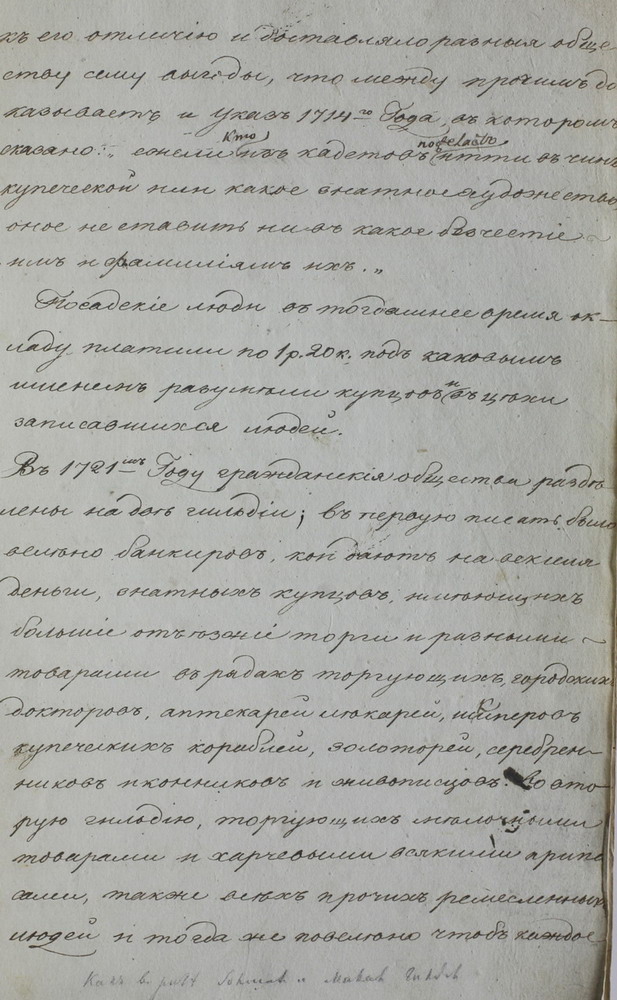 къ его отличію и доставляло разныя обще
ству сему выгоды, что между прочимъ до
казываетъ и указъ 1714го Года, въ которомъ
сказано: „ ежели кто изъ кадетовъ пожелаетъ иттти въ чинъ
купеческой или какое знатное художество
оное не ставить ни въ какое безчестіе
имъ и фамиліямъ ихъ. „
Посадскіе люди въ тогдашнее время ок-
ладу платили по 1 р. 20 к. подъ каковымъ
именемъ разумѣли купцовъ и въ цѣхи
записавшихся людей.
Въ 1721мъ Году гражданскія общества раздѣ
лены на двѣ гильдіи; въ первую писать было
велѣно банкировъ, кои даютъ на векселя
деньги, знатныхъ купцовъ, имѣющихъ
большіе отъѣзжіе торги и разными
товарами въ рядахъ торгующихъ, городскихъ
докторовъ, аптекарей лѣкарей, шкиперовъ
купеческихъ кораблей, золотарей, серебрен-
никовъ иконниковъ и живописцовъ. Во вто
рую гильдію, торгующихъ мѣлочными
товарами и харчевыми всякими припа
сами, также всѣхъ прочихъ ремесленныхъ
людей и тогда же повелѣно чтобъ каждое